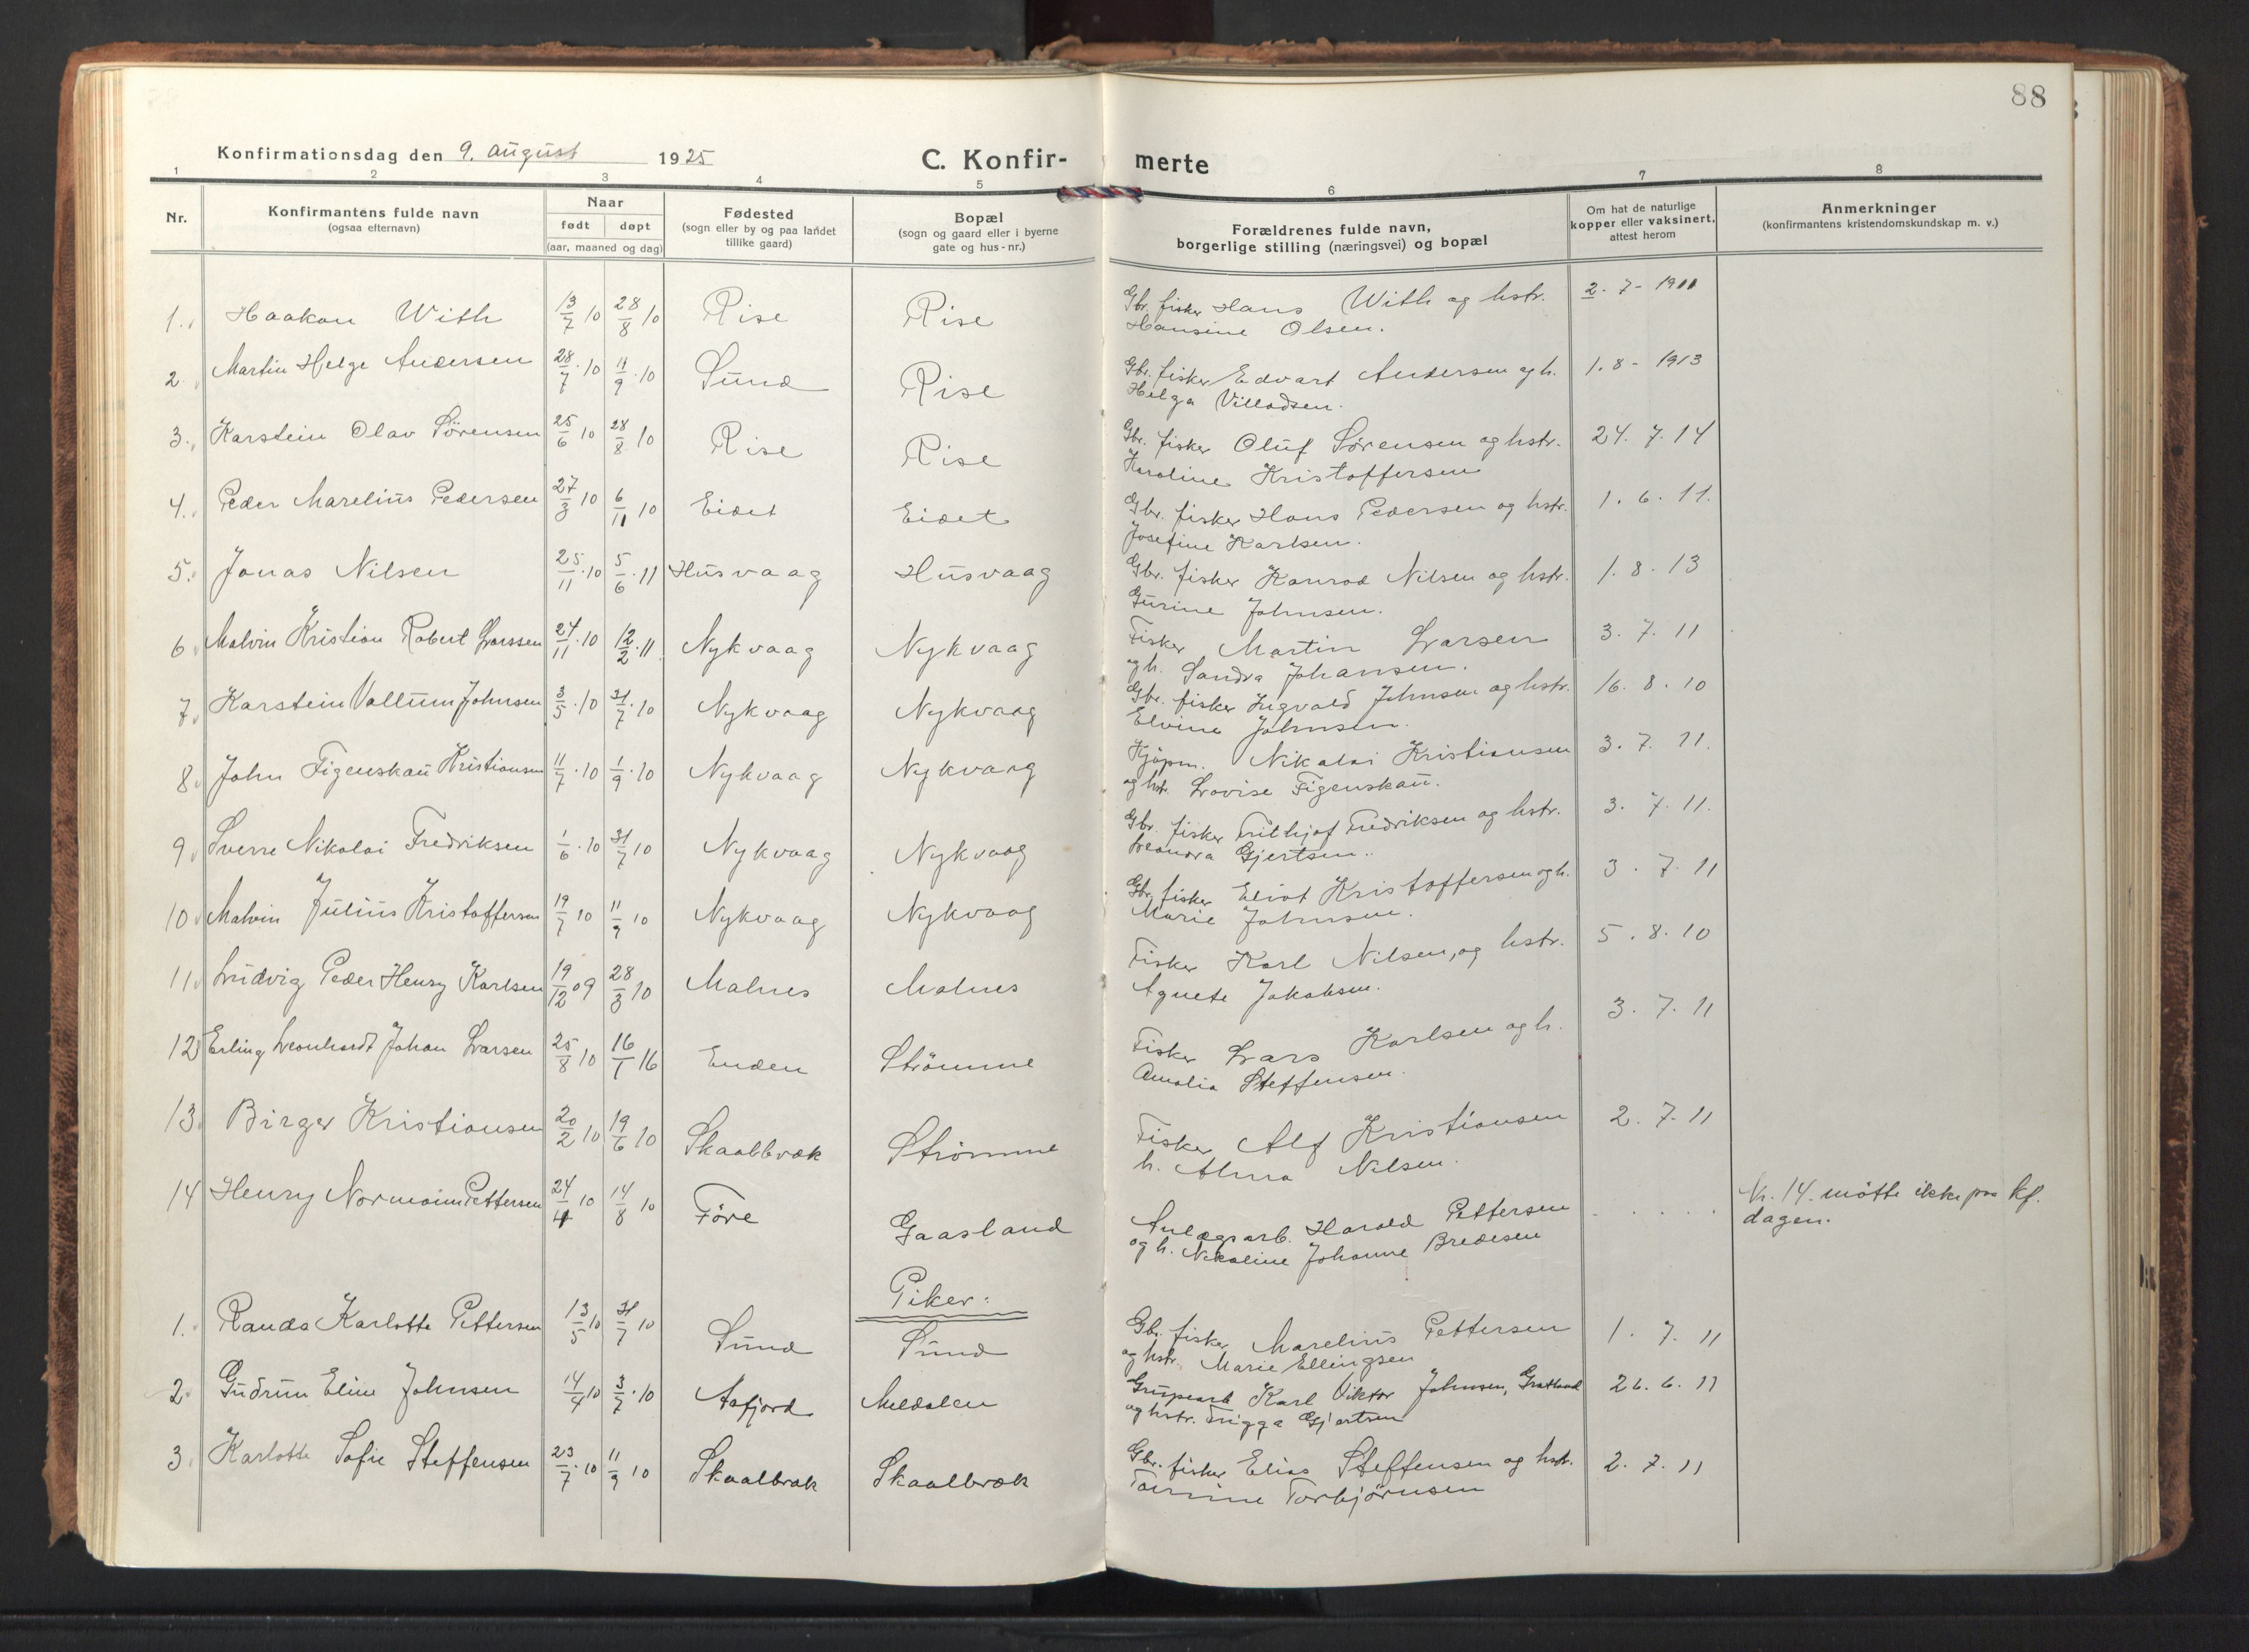 88
Konfirmationsdag den 9. august 1925
C. Konfir- merte
1 2 3 4 5 6 7 8
Nr.
Konfirmantens fulde navn
(ogsaa efternavn)
Naar
født døpt
(aar, maaned og dag)
Fødested
(sogn eller by og paa landet
tillike gaard)
Bopæl
(sogn og gaard eller i byerne
gate og hus-nr.)
Forældrenes fulde navn,
borgerlige stilling (næringsvei) og bopæl
Om hat de naturlige
kopper eller vaksinert,
attest herom
Anmerkninger
(konfirmantens kristendomskundskap m. v.)
1. Haakon With 13/7 10 28/8 10 Rise Rise Gbr. fisker Hans With og hstr. 2. 7 - 1911
Hansine Olsen.
2. Martin Helge Andersen 28/7 . 10 11/9 . 10 Sund Rise Gbr. fisker Edvart Andersen og h. 1. 8 - 1913
Helga Villadsen.
3. Karstein Olav Sörensen 25/6 10 28/8 10 Rise Rise Gbr. fisker Oluf Sörensen og hstr. 24. 7. 14
Karoline Kristoffersen
4. Peder Marelius Pedersen 27/3 10 6/11 10 Eidet Eidet Gbr. fisker Hans Pedersen og hstr. 1. 6. 11.
Josefine Karlsen.
5. Jonas Nilsen 25/11 . 10 5/6 . 11 Husvaag Husvaag Gbr. fisker Konrad Nilsen og hstr. 1. 8. 13
Gurine Johnsen.
6 Malvin Kristian Robert Larssen 24/11 . 10 12/2 . 11 Nykvaag Nykvaag Fisker Martin Larsen 3. 7. 11
og h. Sandra Johansen.
7. Karstein Vallum Johnsen 3/5 . 10 31/7 . 10 Nykvaag Nykvaag Gbr. fisker Ingvald Johnsen og hstr. 16. 8. 10
Elvine Johnsen.
8 John Figenskau Kristiansen 11/7 . 10 1/9 . 10 Nykvaag Nykvaag Kjöpm. Nikolai Kristiansen 3. 7. 11.
og hstr. Lovise Figenskau.
9 Sverre Nikolai Fredriksen 1/6 . 10 31/7 10 Nykvaag Nykvaag Gbr. fisker Frithjof Fredriksen og hstr. 3. 7. 11.
Leonora Gjertsen.
10 Malvin Julius Kristoffersen 19/7 10 11/9 10 Nykvaag Nykvaag Gbr. fisker Eliot Kristoffersen og h. 3. 7. 11
Marie Johnsen.
11 Ludvig Peder Henry Karlsen 19/12 09 28/3 10 Malnes Malnes Fisker Karl Nilsen, og hstr. 5. 8. 10
Agnete Jakobsen.
12 Erling Leonhardt Johan Larsen 25/8 10 16/1 16 Enden Strömme Fisker Lars Karlsen og h. 3. 7. 11
Amalia Steffensen.
13. Birger Kristiansen 20/2 10 19/6 10 Skaalbræk Strömme Fisker Alf Kristiansen 2. 7. 11
h. Alma Nilsen.
14 Henry Normann Pettersen 24/4 10 14/8 10 Före Gaasland Anlægsarb. Harald Pettersen . . . . . Nr. 14. mötte ikke paa kf.
og h. Nikoline Johanne Bredesen dagen.
Piker:
1. Randa Karlotte Pettersen 13/5 10 31/7 10 Sund Sund Gbr. fisker Marelius Pettersen 1. 7. 11
og hstr. Marie Ellingsen
2. Gudrun Eline Johnsen 14/4 10 3/7 . 10 Aafjord Meldalen Karl Viktor Johnsen, 26. 6. 11
og hstr. Frigga Gjertsen
3. Karlotte Sofie Steffensen 23/7 . 10 11/9 10 Skaalbræk Skaalbræk Gbr. fisker Elias Steffensen og hstr. 2. 7. 11
Torbjörnsen